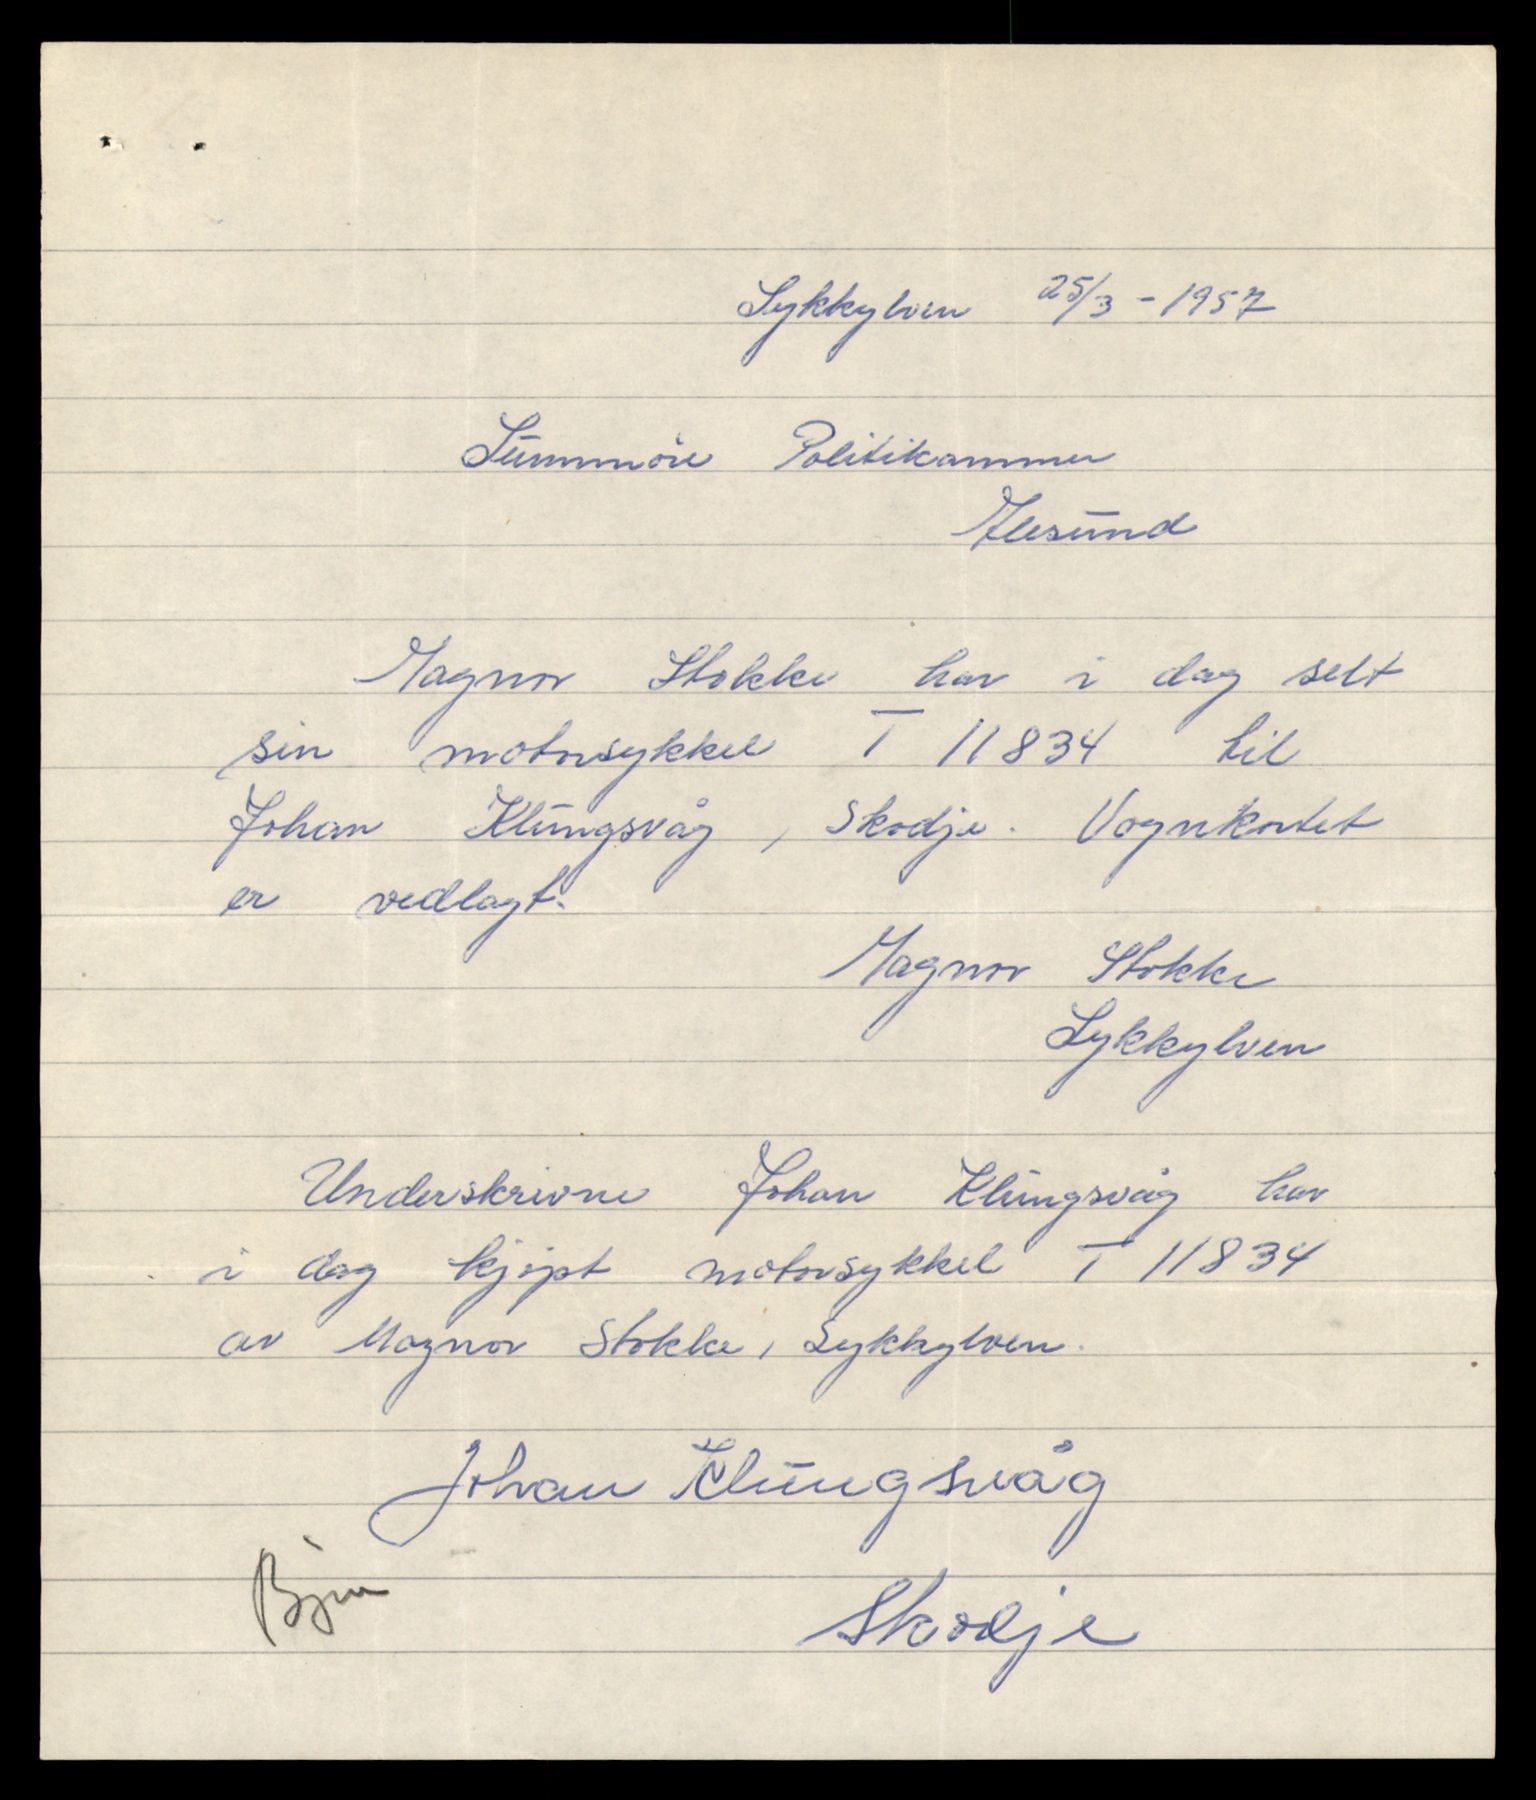 Sykkylven 25/3 - 1957
Sunnmöre Politikammer
Ålesund
Magnor Stokke har i dag selt
sin motorsykkel T 11834 til
Johan Klungsvåg, Skodje. Vognkortet
er vedlagt.
Magnor Stokke
Sykkylven
Underskrivne Johan Klungsvåg har
i dag kjøpt motorsykkel T 11834
av Magnor Stokke, Sykkylven.
Johan Klungsvåg
Skodje